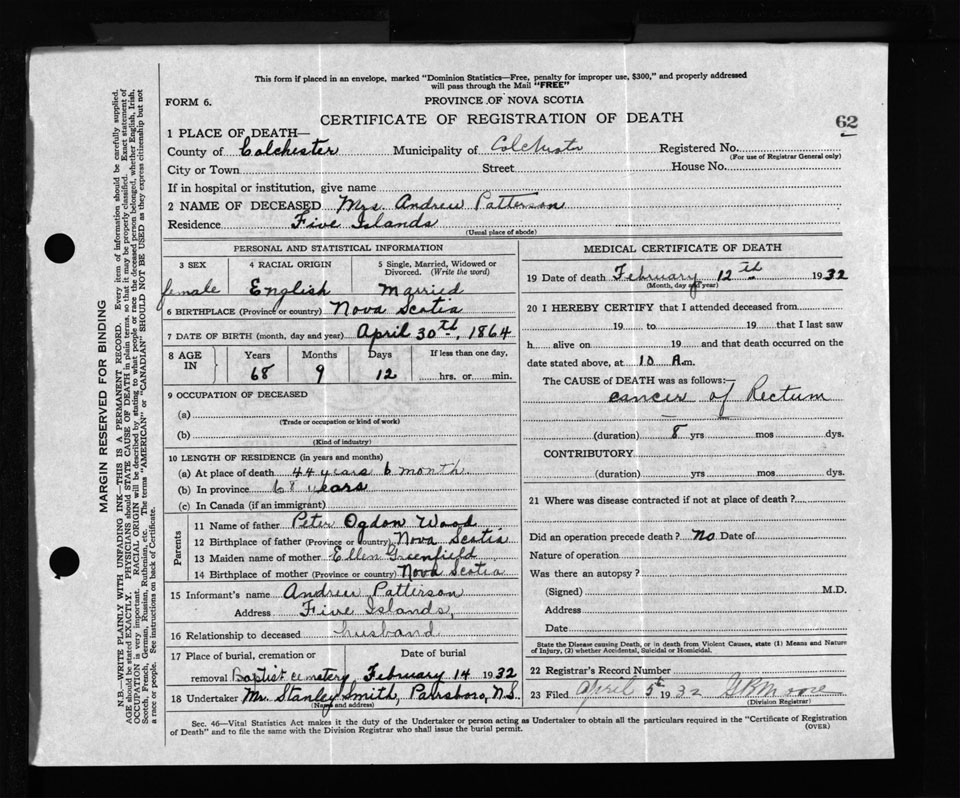 This form if placed in an envelope, marked "Dominion Statistics—Free, penalty for improper use, $300," and properly addressed
will pass through the Mail "FREE"
FORM 6.
PROVINCE OF NOVA SCOTIA
CERTIFICATE OF REGISTRATION OF DEATH
62
1 PLACE OF DEATH—
County of Colchester Municipality of Colchester Registered No.
(For use of Registrar General only)
City or Town Street House No.
If in hospital or institution, give name
2 NAME OF DECEASED Mrs. Andrew Patterson
Residence Five Islands
(Usual place of abode)
PERSONAL AND STATISTICAL INFORMATION
3 SEX 4 RACIAL ORIGIN 5 Single, Married, Widowed or
Divorced. (Write the word)
female English Married
6 BIRTHPLACE (Province or country) Nova Scotia
7 DATE OF BIRTH (month, day and year) April 30th, 1864
8 AGE IN Years Months Days If less than one day,
68 9 12 hrs. or min.
9 OCCUPATION OF DECEASED
(a)
(Trade or occupation or kind of work)
(b)
(Kind of industry)
10 LENGTH OF RESIDENCE (in years and months)
(a) At place of death 44 years 6 month
(b) In province 68 years
(c) In Canada (if an immigrant)
Parents
11 Name of father Peter Ogdon Wood
12 Birthplace of father (Province or country) Nova Scotia
13 Maiden name of mother Ellen Greenfield
14 Birthplace of mother (Province or country) Nova Scotia
15 Informant's name Andrew Patterson
Address Five Islands,
16 Relationship to deceased husband
17 Place of burial, cremation or Date of burial
removal Baptist cemetery February 14 1932
18 Undertaker Mr. Stanley Smith, Parrsboro, N.S.
(Name and address)
MEDICAL CERTIFICATE OF DEATH
19 Date of death February 12th 1932
(Month, day and year)
20 I HEREBY CERTIFY that I attended deceased from
19 to 19 that I last saw
h alive on 19 and that death occurred on the
date stated above, at 10 A.m.
The CAUSE of DEATH was as follows:—
cancer of Rectum
(duration) 8 yrs mos dys.
CONTRIBUTORY
(duration) yrs mos dys.
21 Where was disease contracted if not at place of death?
Did an operation precede death? No Date of
Nature of operation
Was there an autopsy?
(Signed) M.D.
Address
Date
State the Disease causing Death, or in death from Violent Causes, state (1) Means and Nature
of Injury, (2) whether Accidental, Suicidal or Homicidal.
22 Registrar's Record Number
23 Filed April 5th 1932 Moore
(Division Registrar)
Sec. 46—Vital Statistics Act makes it the duty of the Undertaker or person acting as Undertaker to obtain all the particulars required in the "Certificate of Registration
of Death" and to file the same with the Division Registrar who shall issue the burial permit.
(OVER)
MARGIN RESERVED FOR BINDING
N.B.—WRITE PLAINLY WITH UNFADING INK—THIS IS A PERMANENT RECORD. Every item of information should be carefully supplied.
AGE should be stated EXACTLY. PHYSICIANS should STATE CAUSE OF DEATH in plain terms, so that it may be properly classified. Exact statement of
OCCUPATION is very important. RACIAL ORIGIN will be described by stating to what people or race the deceased person belonged, whether English, Irish,
Scotch, French, German, Russian, Ruthenian, etc. The terms "AMERICAN" or "CANADIAN" SHOULD NOT BE USED as they express citizenship but not
a race or people. See instructions on back of Certificate.